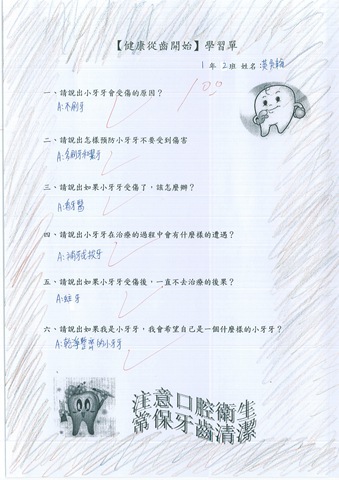 【健康從齒開始】學習單
1年2班 姓名
100
一、請說出小牙牙會受傷的原因？
A:不刷牙
二、請說出怎樣預防小牙牙不要受到傷害
A:刷牙和
三、請說出如果小牙牙受傷了，該怎麼辦？
A:看牙醫
四、請說出小牙牙在治療的過程中會有什麼樣的遭遇？
A:補牙或拔牙
五、請說出如果小牙牙受傷後，一直不去治療的後果？
A:蛀牙
六、請說出如果我是小牙牙，我會希望自己是一個什麼樣的小牙牙？
A:乾淨整齊的小牙牙
注意口腔衛生
常保牙齒清潔